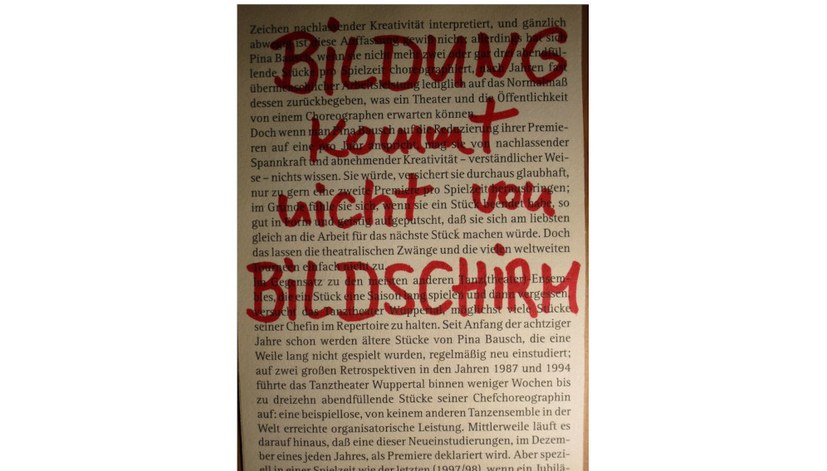 BiLDUNG
kommt
nicht von
BiLDSCHiRM
Zeichen nachlassender Kreativität interpretiert, und gänzlich
ist diese Auffassung gewiß nicht; allerdings hat sich
Pina Bausch, wenn sie nicht mehr zwei oder gar drei abendfül-
lende Stücke pro Spielzeit choreographiert, nach Jahren fast
Arbeitsleistung lediglich auf das Normalmaß
dessen zurückbegeben, was ein Theater und die Öffentlichkeit
von einem Choreographen erwarten können.
Doch wenn man Pina Bausch auf die Reduzierung ihrer Premie-
ren auf eine pro Jahr anspricht, mag sie von nachlassender
Spannkraft und abnehmender Kreativität – verständlicher Wei-
se – nichts wissen. Sie würde, versichert sie durchaus glaubhaft,
nur zu gern eine zweite Premiere pro Spielzeit herausbringen;
im Grunde fühle sie sich, wenn sie ein Stück beendet habe, so
gut in Form und geistig aufgeputscht, daß sie sich am liebsten
gleich an die Arbeit für das nächste Stück machen würde. Doch
das lassen die theatralischen Zwänge und die vielen weltweiten
Tourneen einfach nicht zu.
Im Gegensatz zu den meisten anderen Tanz(theater)-Ensem-
bles, die ein Stück eine Saison lang spielen und dann vergessen,
versucht das Tanztheater Wuppertal, möglichst viele Stücke
seiner Chefin im Repertoire zu halten. Seit Anfang der achtziger
Jahre schon werden ältere Stücke von Pina Bausch, die eine
Weile lang nicht gespielt wurden, regelmäßig neu einstudiert;
auf zwei großen Retrospektiven in den Jahren 1987 und 1994
führte das Tanztheater Wuppertal binnen weniger Wochen bis
zu dreizehn abendfüllende Stücke seiner Chefchoreographin
auf: eine beispiellose, von keinem anderen Tanzensemble in der
Welt erreichte organisatorische Leistung. Mittlerweile läuft es
darauf hinaus, daß eine dieser Neueinstudierungen, im Dezem-
ber eines jeden Jahres, als Premiere deklariert wird. Aber spezi-
ell in einer Spielzeit wie der letzten (1997/98), wenn ein Jubilä-